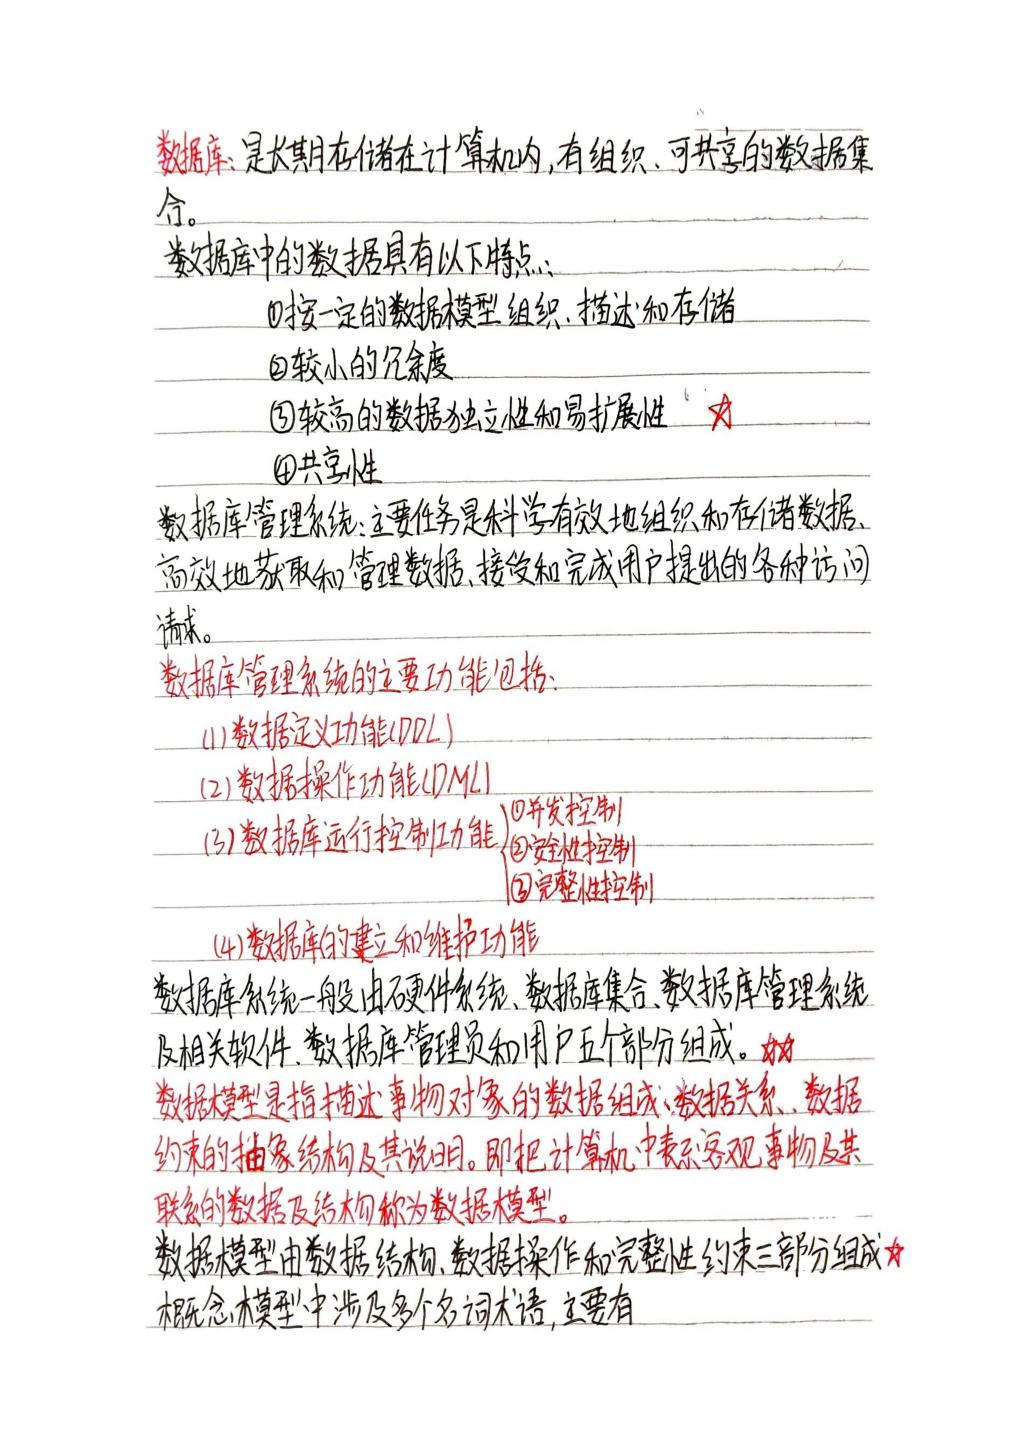 数据库：是长期存储在计算机内，有组织、可共享的数据集
合。
数据库中的数据具有以下特点：
①按一定的数据模型组织、描述和存储
②较小的冗余度
③较高的数据独立性和易扩展性 ☆
④共享性
数据库管理系统：主要任务是科学有效地组织和存储数据、
高效地获取和管理数据、接受和完成用户提出的各种访问
请求。
数据库管理系统的主要功能包括：
(1)数据定义功能(DDL)
(2)数据操作功能(DML)
(3)数据库运行控制功能
①并发控制
②安全性控制
③完整性控制
(4)数据库的建立和维护功能
数据库系统一般由硬件系统、数据库集合、数据库管理系统
及相关软件、数据库管理员和用户五个部分组成。☆☆
数据模型是指描述事物对象的数据组成、数据关系、数据
约束的抽象结构及其说明。即把计算机中表示客观事物及其
联系的数据及结构称为数据模型。
数据模型由数据结构、数据操作和完整性约束三部分组成☆
概念模型中涉及多个名词术语，主要有